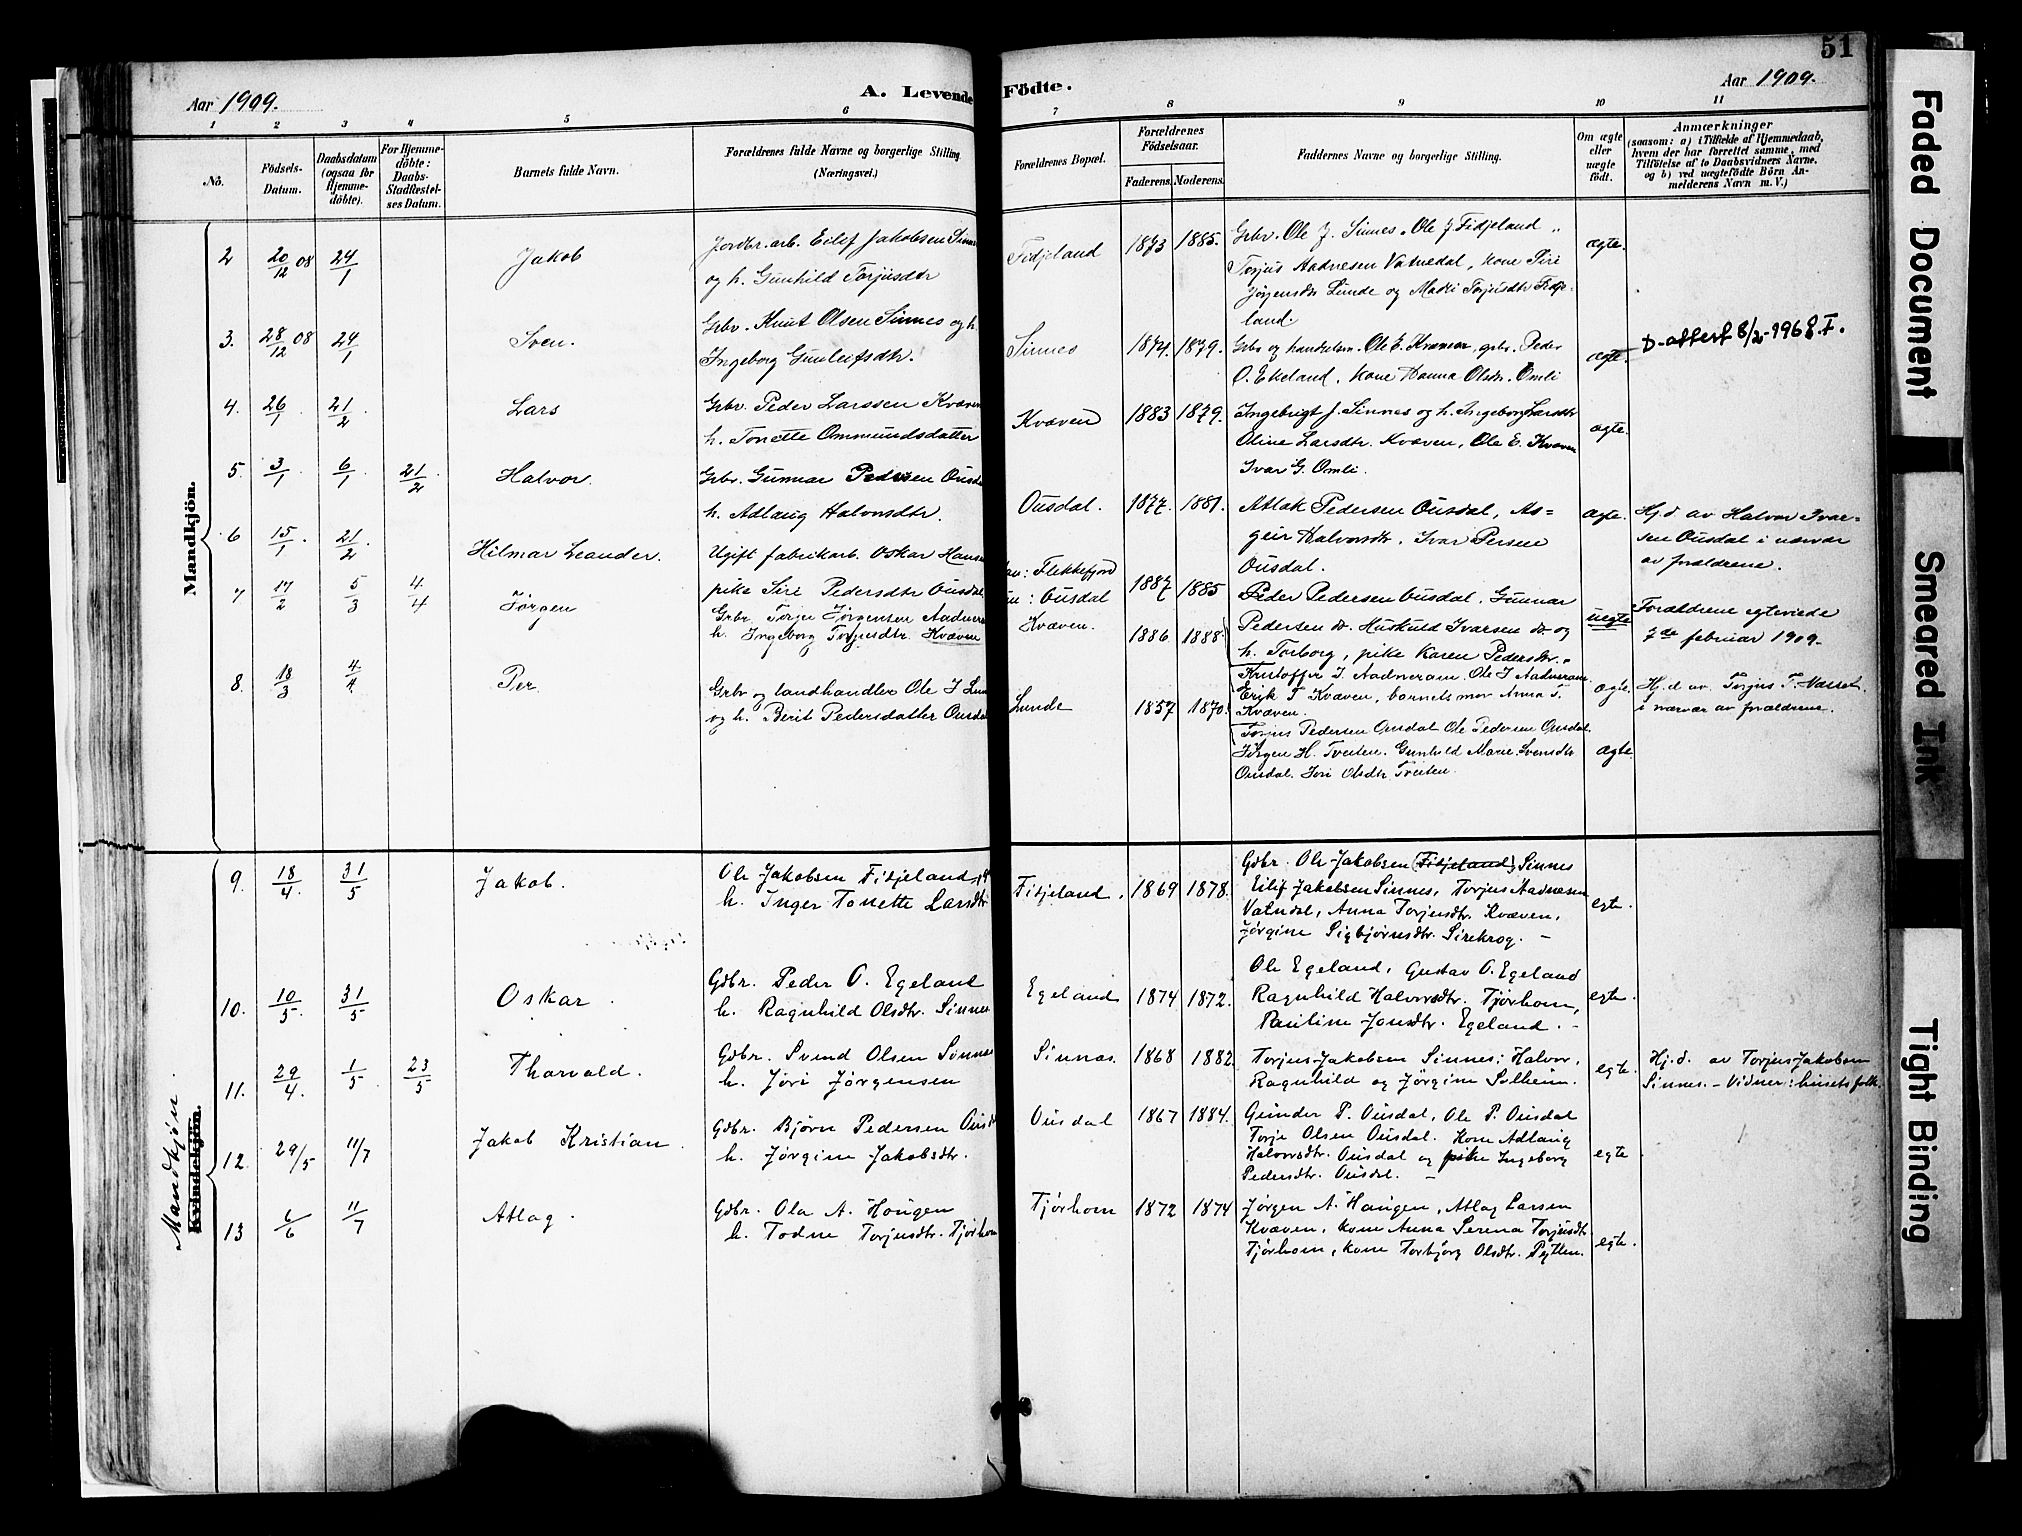 51
Aar 1909.
A. Levende Födte.
Aar 1909.
1 2 3 4 5 6 7 8 9 10 11
No.
Födsels-Datum.
Daabsdatum (ogsaa for Hjemme-döbte).
For Hjemme-döbte: Daabs-Stadfæstel-ses Datum.
Barnets fulde Navn.
Forældrenes fulde Navne og borgerlige Stilling (Næringsvei.)
Forældrenes Bopæl.
Forældrenes Födselsaar.
Faderens. Moderens.
Faddernes Navne og borgerlige Stilling.
Om ægte eller uægte födt.
Anmærkninger
(saasom: a) i Tilfælde af Hjemmedaab,
hvem der har forrettet samme, med
Tilföielse af to Daabsvidners Navne.
og b) ved uægtefödte Börn An-
melderens Navn m. V.)
Mandkjön.
2 20/12 08 24/1 Jakob
Jordbr. arb. Eilef Jakobsen Sinnes
og h. Gunhild Torjusdtr
Fidjeland 1873 1885.
Grbr. Ole J. Sinnes. Ole J Fidjeland
Torjus Aadnesen Vatnedal, kone Siri
Jörgensdtr Lunde og Torjusdtr Fidje-
land.
ægte.
3. 28/12 08 24/1 Sven.
Grbr. Knut Olsen Sinnes og h.
Ingeborg Gunleifsdtr.
Sinnes 1874. 1879.
Grbr og handelsm. Ole E. Kvæven, grbr. Peder
O. Ekeland, kone Hanna Olsdtr. Omli
ægte.
D-attest 8/2-1968.
4. 26/1 21/2 Lars
Grbr. Peder Larssen Kvæven
h. Tonette Ommundsdatter
Kvæven 1883 1879.
Ingebrigt J. Sinnes og h. Ingeborg Larsdtr
Oline Larsdtr. Kvæven, Ole E. Kvæven
Ivar G. Omli.
ægte.
5. 3/1 6/1 21/2 Halvor.
Grbr. Gunnar Pedersen Ousdal
h. Adlaug Halvorsdtr.
Ousdal. 1877. 1881.
Atlak Pedersen Ousdal, As-
geir Halvorsdr. Ivar Persen
Ousdal.
ægte.
Hj.d. av Halvor Ivar-
sen Ousdal i nærvær
av forældrene.
6 15/1 21/2 Hilmar Leander.
Ugift fabrikarb. Oskar Hansen
pike Siri Pedersdtr Ousdal
: Flekkefjord
: Ousdal
1887 1885
Peder Pedersen Ousdal, Gunnar
Pedersen do. Huskuld Ivarsen do og
h. Torborg, pike Karen Pedersdtr.
uegte
Forældrene egteviede
7de februar 1909.
7 17/2 5/3 4/4 Jörgen
Grbr Torger Jörgensen Aadneram
h. Ingeborg Torjusdtr. Kvæven
Kvæven. 1886 1888.
Kristoffer I. Aadneram. Ole J. Aadneram
Erik T Kvæven, barnets mor Anna T.
Kvæven.
ægte.
Hj.d av. Torjus T. Nesset
i nærvær av forældrene.
8. 18/3 4/4 Per
Grbr og landhandler Ole J Lunde
og h. Berit Pedersdatter Ousdal
Lunde 1857 1870.
Torjus Pedersen Ousdal Ole Pedersen Ousdal.
Jörgen H. Tveiten. Gunhild Marie Svensdtr
Ousdal. Jori Olsdtr Tveiten.
ægte
Mandkjön
Kvindekjön.
9. 18/4. 31/5 Jakob.
Ole Jakobsen Fidjeland
h. Inger Tonette Larsdtr
Fidjeland. 1869 1878.
Gdbr. Ole Jakobsen (Fidjeland) Sinnes
Eilif Jakobsen Sinnes, Torjus Aadnesen
Vatndal, Anna Torjusdtr. Kvæven,
Jørgine Sigbjørnsdtr. Sirekrog. -
egte.
10. 10/5. 31/5 Oskar.
Gdbr. Peder O. Egeland
h. Ragnhild Olsdtr. Sinnes
Egeland 1874 1872.
Ole Egeland, Gustav O. Egeland
Ragnhild Halvorsdtr. Tjørhom,
Pauline Jonsdtr. Egeland. -
egte.
11. 29/4. 1/5 23/5 Thorvald.
Gdbr. Svend Olsen Sinnes
h. Jori Jørgensen
Sinnes. 1868 1882.
Torjus Jakobsen Sinnes; Halvor,
Ragnhild og Jørgine Solheim.
egte.
Hj.d. av Torjus Jakobsen
Sinnes. - Vidner: husets folk.
12. 29/5 11/7 Jakob Kristian.
Gdbr. Bjørn Pedersen Ousdal
h. Jørgine Jakobsdtr.
Ousdal 1867 1884.
Gunder P. Ousdal, Ole P. Ousdal
Torje Olsen Ousdal. Kone Adlaug
Halvorsdtr. Ousdal og pike Ingeborg
Pedersdtr. Ousdal. -
egte
13 6/6 11/7 Atlag.
Gdbr. Ola A. Hougen
h. Todne Torjusdtr. Tjørhom
Tjørhom 1872 1874
Jørgen A. Haugen, Atlag Larsen
Kvæven, kone Anna Serina Torjusdtr
Tjørhom, kone Torbjørg Olsdtr. Pytten.
egte.
Faded Document
Smeared Ink
Tight Binding